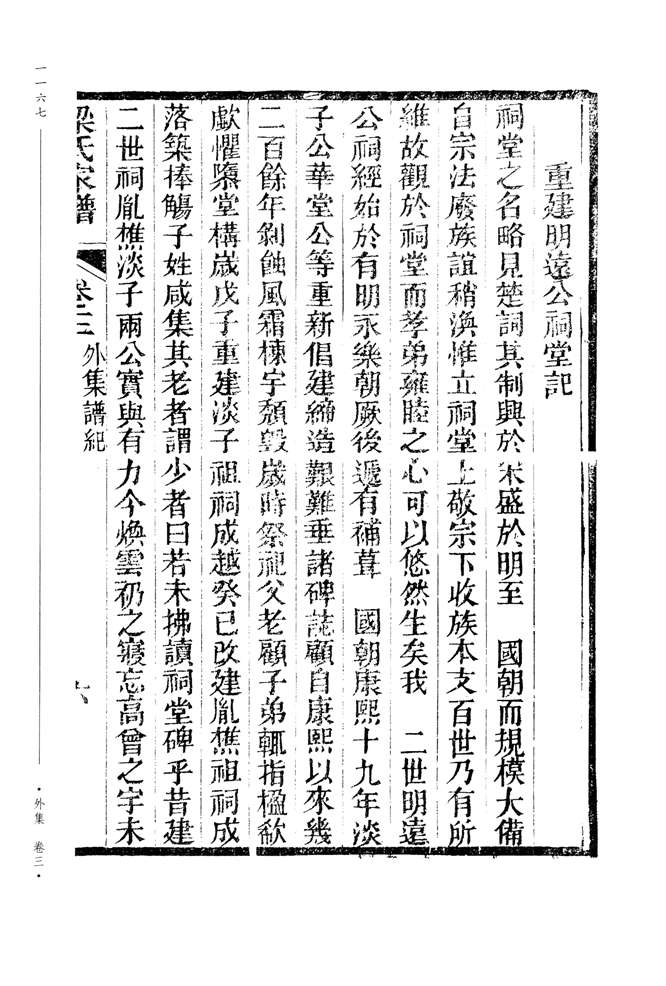 重建明遠公祠堂記
祠堂之名略見楚詞其制興於宋盛於明至　國朝而規模大備
自宗法廢族誼稍渙惟立祠堂上敬宗下收族本支百世乃有所
維故觀於祠堂而孝弟雍睦之心可以悠然生矣我　二世明遠
公祠經始於有明永樂朝厥後遞有補葺　國朝康熙十九年淡
子公華堂公等重新倡建締造艱難垂諸碑誌顧自康熙以來幾
二百餘年剝蝕風霜棟宇頹毀歲時祭祀父老顧子弟輒指楹欷
歔懼隳堂構歲戊子重建淡子祖祠成越癸巳改建胤樵祖祠成
落築捧觴子姓咸集其老者謂少者曰若未拂讀祠堂碑乎昔建
二世祠胤樵淡子兩公實與有力今煥雲礽之寢忘高曾之宇未
梁氏家譜　卷三　外集譜紀　六
一一六七
·外集　卷三·